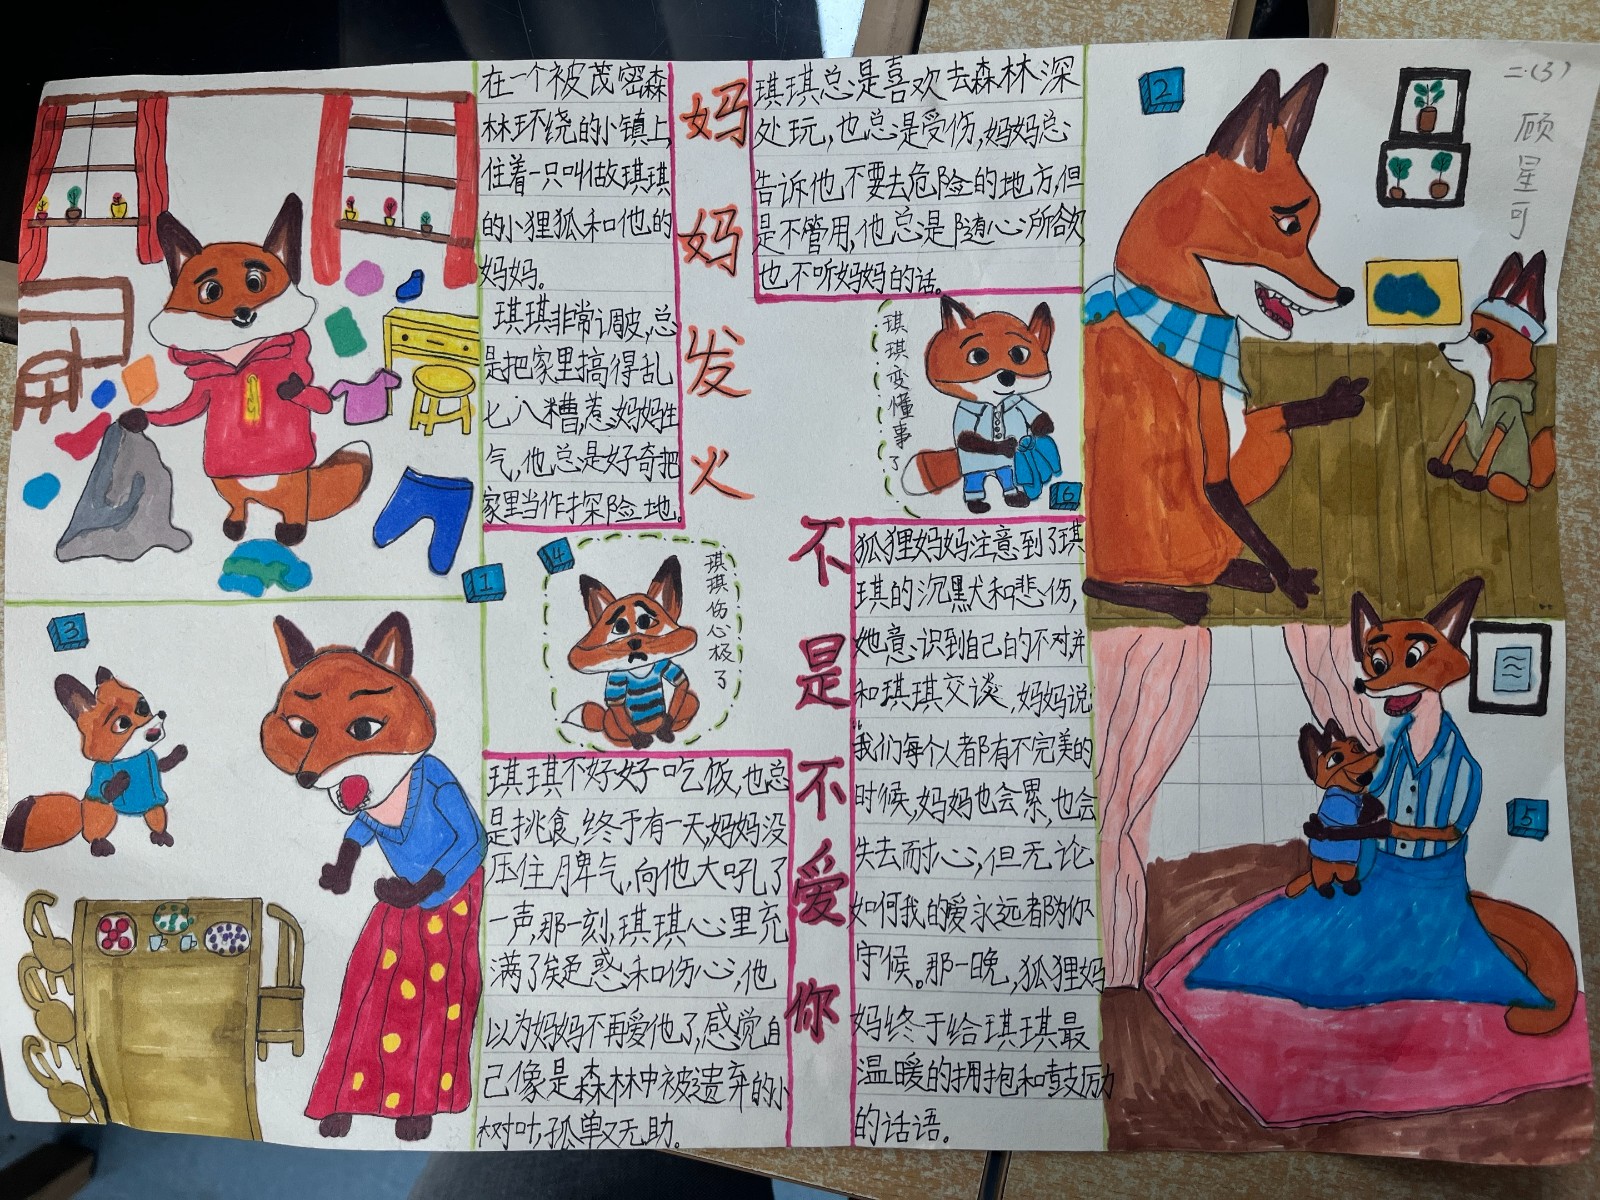 二.(3)
顾星可
妈妈发火
不是不爱你
1
在一个被茂密森
林环绕的小镇上,
住着一只叫做琪琪
的小狸狐和他的
妈妈。
琪琪非常调皮,总
是把家里搞得乱
七八糟,惹妈妈生
气,他总是好奇把
家里当作探险地。
2
琪琪总是喜欢去森林深
处玩,也总是受伤,妈妈总
告诉他,不要去危险的地方,但
是不管用,他总是随心所欲
也不听妈妈的话。
3
琪琪不好好吃饭,也总
是挑食,终于有一天,妈妈没
压住脾气,向他大吼了
一声,那一刻,琪琪心里充
满了疑惑和伤心,他
以为妈妈不再爱他了,感觉自
己像是森林中被遗弃的小
树叶,孤单又无助。
4
琪琪伤心极了
5
狐狸妈妈注意到了琪
琪的沉默和悲伤,
她意识到自己的不对,并
和琪琪交谈,妈妈说:
"我们每个人都有不完美的
时候,妈妈也会累,也会
失去耐心,但无论
如何我的爱永远都为你
守候。那一晚,狐狸妈
妈终于给琪琪最
温暖的拥抱和鼓励
的话语。
6
琪琪变懂事了